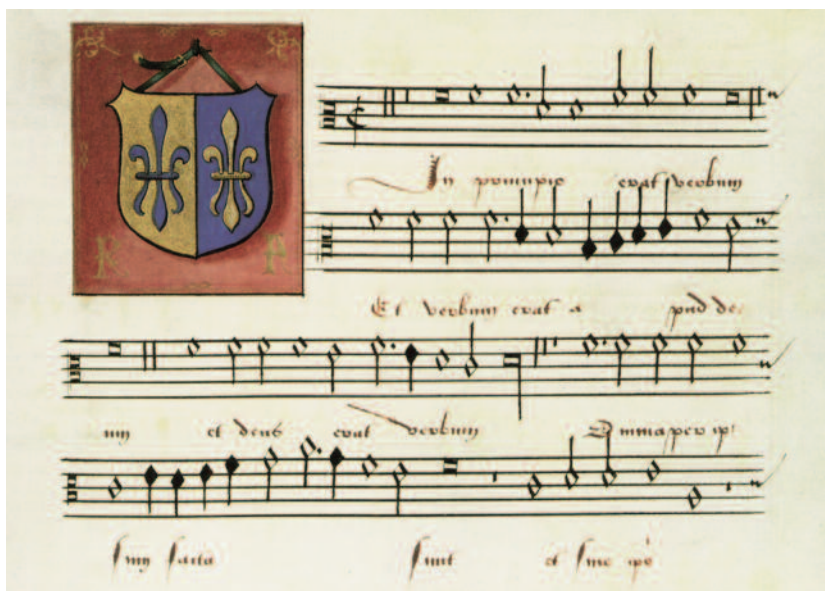 R A
In principio erat verbum
Et verbum erat a pud de
um et deus erat verbum Omnia per ip
sum facta sunt et sine ipo